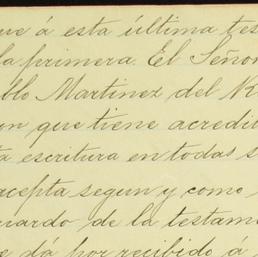 que á esta última tes
la primera. El Señor
blo Martinez del R
on que tiene acredi
ta escritura en todas s
acepta segun y como
uardo de la testam
e dá por recibido á